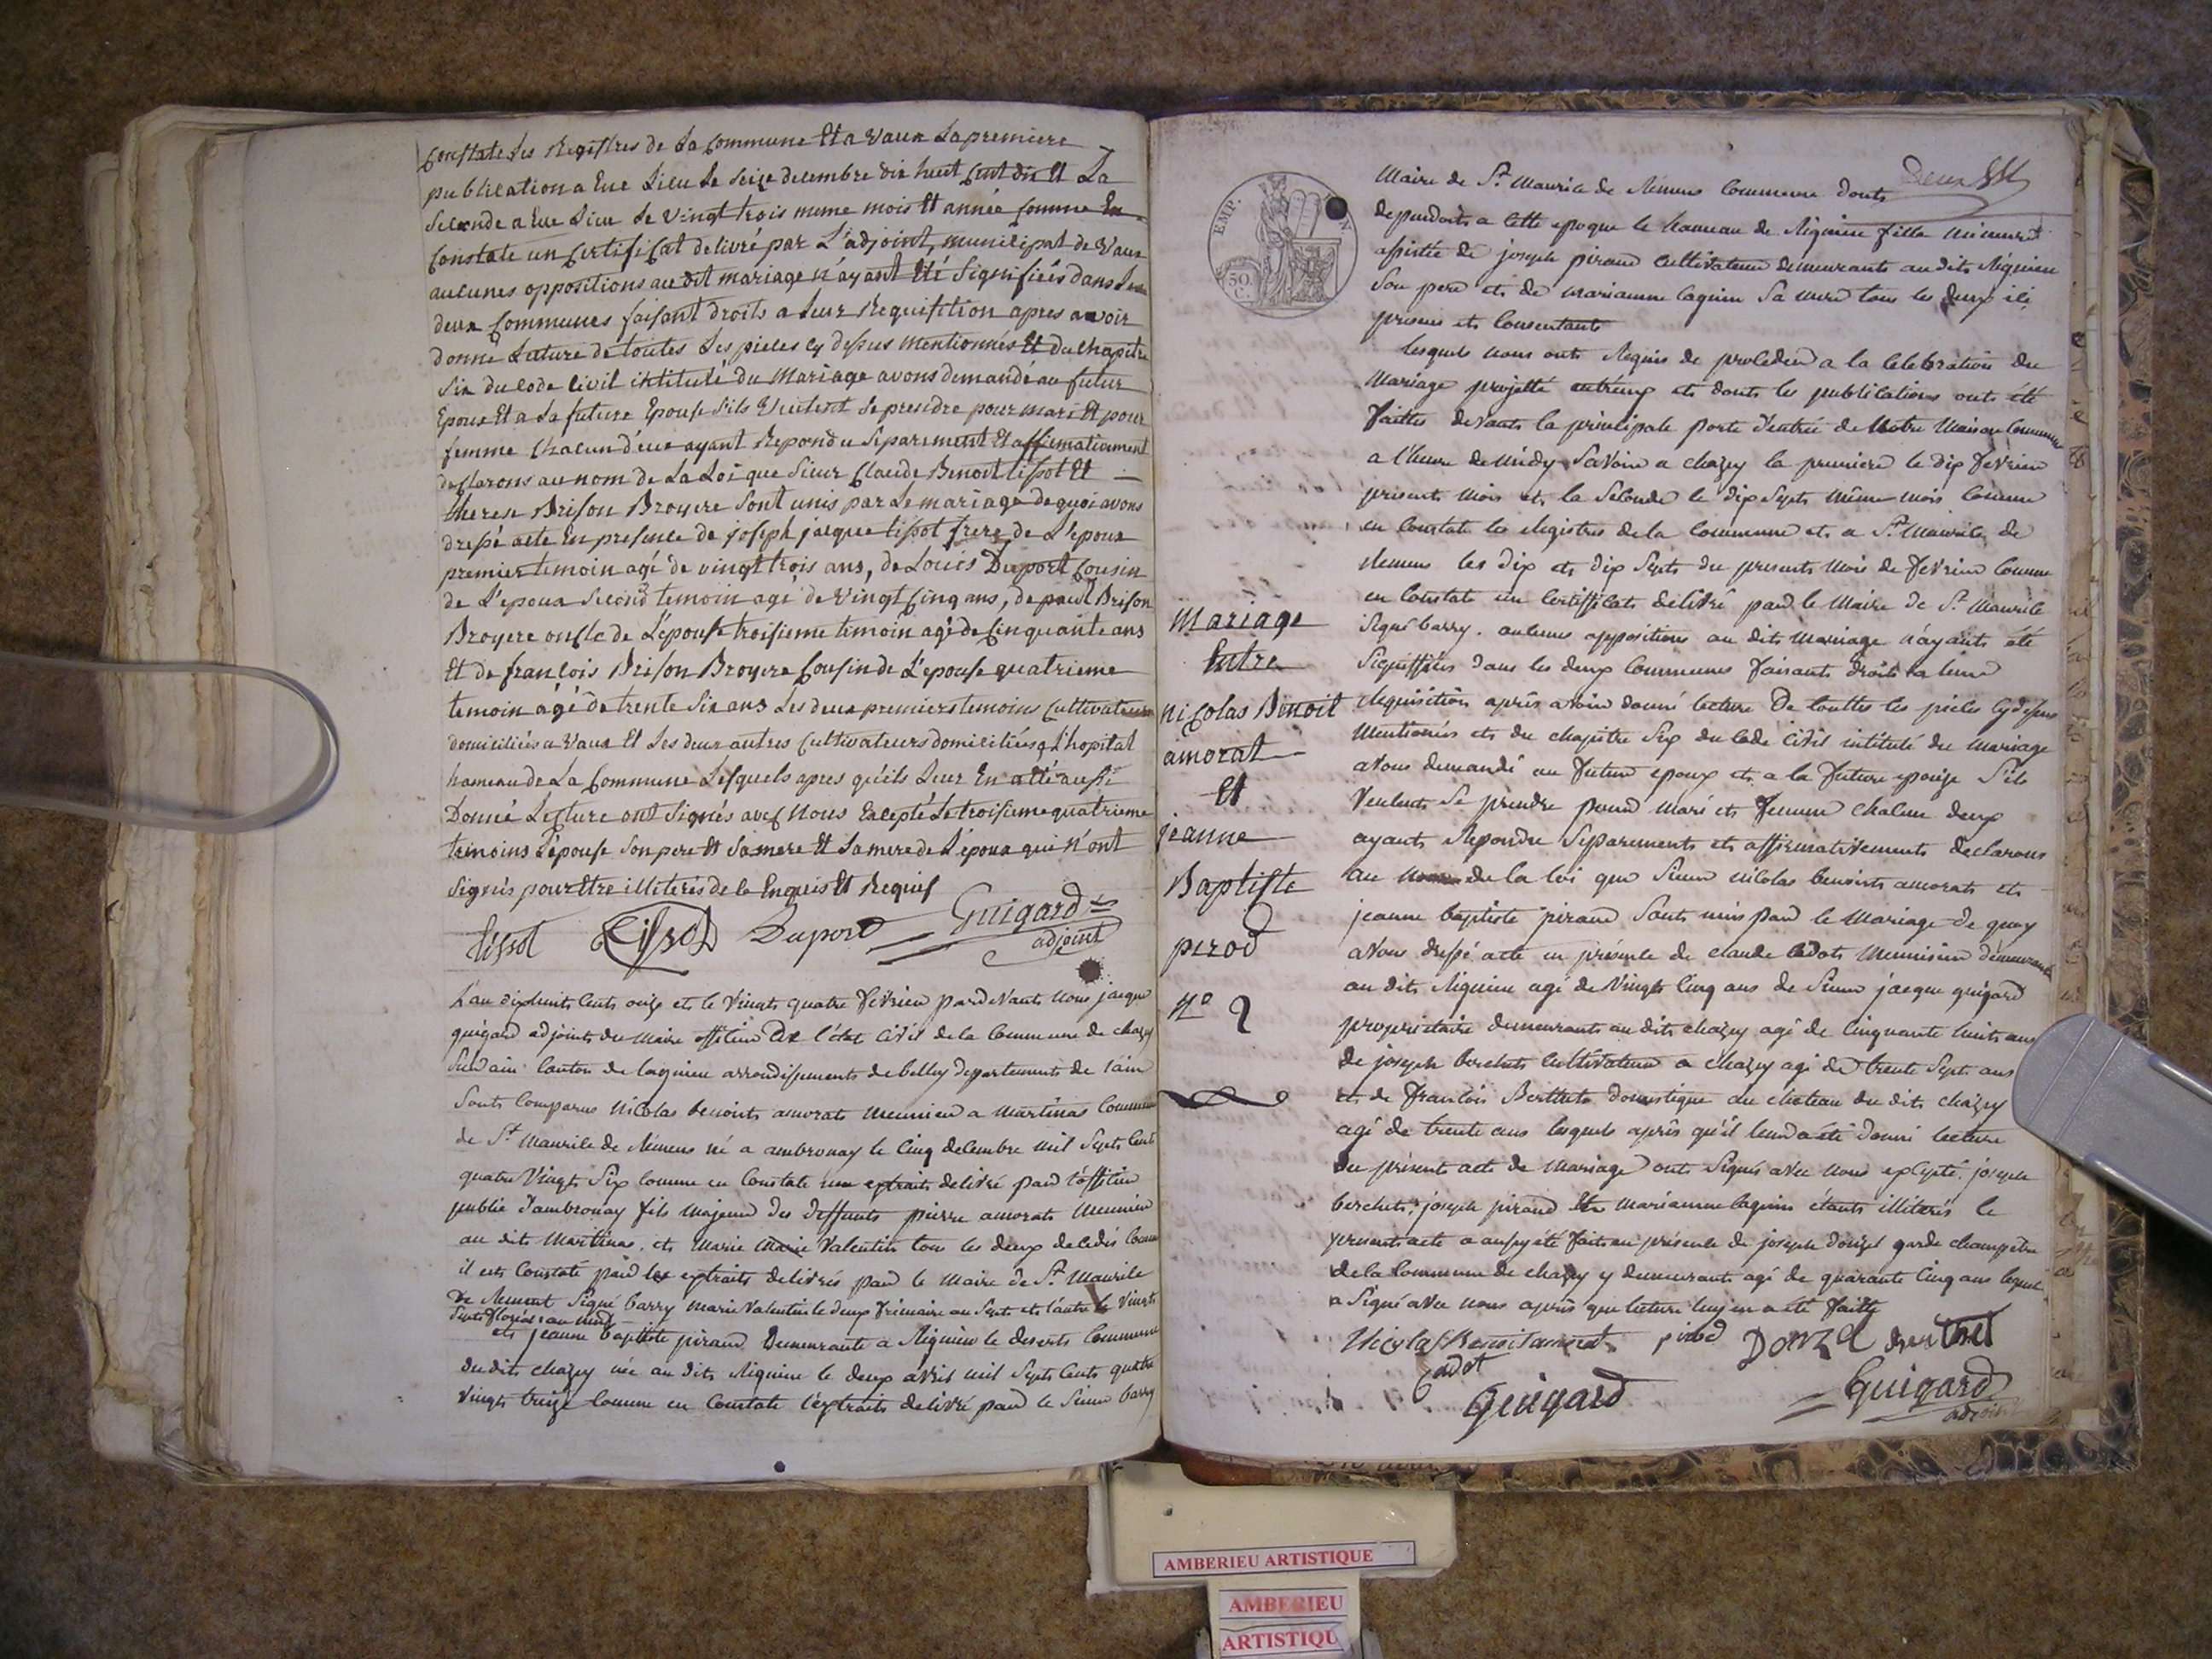 Constate les Registres de la Commune Et a Vaux La premiere
publication a Eue Lieu Le Seize decembre dix huit Cent dix Et La
Seconde a Eue Lieu Le Vingt trois meme mois Et année Comme En
Constate un Certificat delivré par L'adjoint, municipal de Vaux
aucunes oppositions au dit mariage n'ayant Eté Signifiées dans Les
deux Communes faisant droits a Leur Requisition apres avoir
donne Lecture de toutes Les pieces cy dessus mentionnés Et du Chapitre
Six du code Civil intitulé du Mariage avons demandé au futur
Epoux Et a La future Epouse S'ils Veulent Se prendre pour mari Et pour
femme Chacun d'eux ayant Repondu Separement Et affirmativement
declarons au nom de La Loi que Sieur Claude Benoit tissot Et
therese Brison Broyere Sont unis par Le mariage de quoi avons
dressé acte En presence de joseph jacque tissot frere de L'epoux
premier temoin agé de vingt trois ans, de Louis Duport Cousin
de L'epoux Second temoin agé de Vingt Cinq ans, de paul Brison
Broyere oncle de L'épouse troisieme temoin agé de Cinquante ans
Et de françois Brison Broyere Cousin de L'epouse quatrieme
temoin agé de trente Six ans Les deux premiers temoins Cultivateurs
domiciliés a Vaux Et Les deux autres Cultivateurs domiciliés a L'hopital
hameau de La Commune Lesquels apres qu'ils Leur En a été aussi
Donné Lecture ont Signés avec Nous Excepté Le troisieme quatrieme
temoins L'épouse Son pere Et Sa mere Et La mere de L'époux qui n'ont
Signés pour Etre illiterés de ce Enquis Et Requis
tissot Tissot Duport Guigard
adjoint
L'an dix huits Cents onze et le Vingts quatre fevrier pardevants nous jacque
guigard adjoints du Maire officier de l'état Civil de la Commune de chazey
Sur ain Canton de lagnieu arrondissements de belley departements de l'ain
Sonts Comparus Nicolas benoits amorats Meunier a Martinas Commune
de St Maurice de Remens né a ambronay le Cinq decembre mil Septs Cents
quatre Vingts Six Comme en Constate un extraits delivré pard l'officier
public d'ambronay fils Majeurd des deffunts pierre amorats Meunier
au dits Martinas. ets Marie Valentin tous les deux decedés Comme
il ets Constaté pard les extraits delivrés pard le Maire de St Maurice
De Remens Signé barry marie Valentin le deux frimaire an Septs ets l'autre le Vingts
Septs floréal an
ets jeanne baptiste piraud Demeurante a Rignieu le deserts Commune
du dits chazey née au dits Rignieu le deux avril mil Septs Cents quatre
Vingts treize Comme en Constate l'extraits delivré pard le Sieur barry
EMP.
50
C.
Maire de St Maurice de Rémens Commune donts
dependoits a cette epoque le hameau de Rignieu fille mineure
assistée de joseph piraud Cultivateur demeurants au dits Rignieu
Son pere ets de marianne lagnieu Sa mere tous les deux ici
presens ets Consentants
Lesquels nous onts Requis de proceder a la Celebration du
Mariage projetté entreux ets donts les publications onts été
faittes devants la principale porte d'entrée de Notre Maison Commune
a l'heure de Midy Savoir a chazey la premiere le dix fevrier
presents mois ets la Seconde le dix Septs même mois Comme
en Constate les Registres de la Commune ets a St Maurice de
Remens les dix ets dix Septs du presents mois de fevrier Comme
en Constate un Certifficats delivré pard le Maire de St Maurice
Signé barry. aucunes oppositions au dits mariage n'ayants été
Signiffiées dans les deux Communes faisants droits a leur
Requisition après avoir donné lecture De touttes les pieces Cy dessus
Mentionées ets du chapitre Six du Code Civil intitulé du mariage
avons demandé au futur epoux ets a la future epouze S'ils
Veulents Se prendre pour mari ets femme chacun deux
ayants Repondu Separements ets affirmativements declarons
au nom de la loi que Sieur Nicolas benoits amorats ets
jeanne baptiste piraud Sonts unis pard le Mariage de quoy
avons dressé acte en présence de claude Cadots Menuisier demeurants
au dits Rignieu agé de Vingts Cinq ans de Sieur jacque guigard
proprietaire demeurants au dits chazey agé de Cinquante huits ans
de joseph berchets Cultivateur a chazey agé de trente Septs ans
ets de francois Berthets domestique au chateau du dits chazey
agé de trente ans lesquels après qu'il leurd a été donné lecture
du présent acte de Mariage onts Signés avec nous exepté joseph
berchets, joseph piraud ets Marianne lagnieu étants illiterés le
presents acte a aussy été faits en présence de joseph donzel garde champetre
de la Commune de chazey y demeurants agé de quarante Cinq ans lequel
a Signé avec nous après que lecture luy en a été faitte
Nicolas Benoit amorat pirod Donzel berthet
Cadot
Guigard Guigard
adjoint
Mariage
Entre
nicolas Benoit
amorat
Et
jeanne
Baptiste
pirod
No 2
AMBERIEU ARTISTIQUE
AMBERIEU
ARTISTIQU